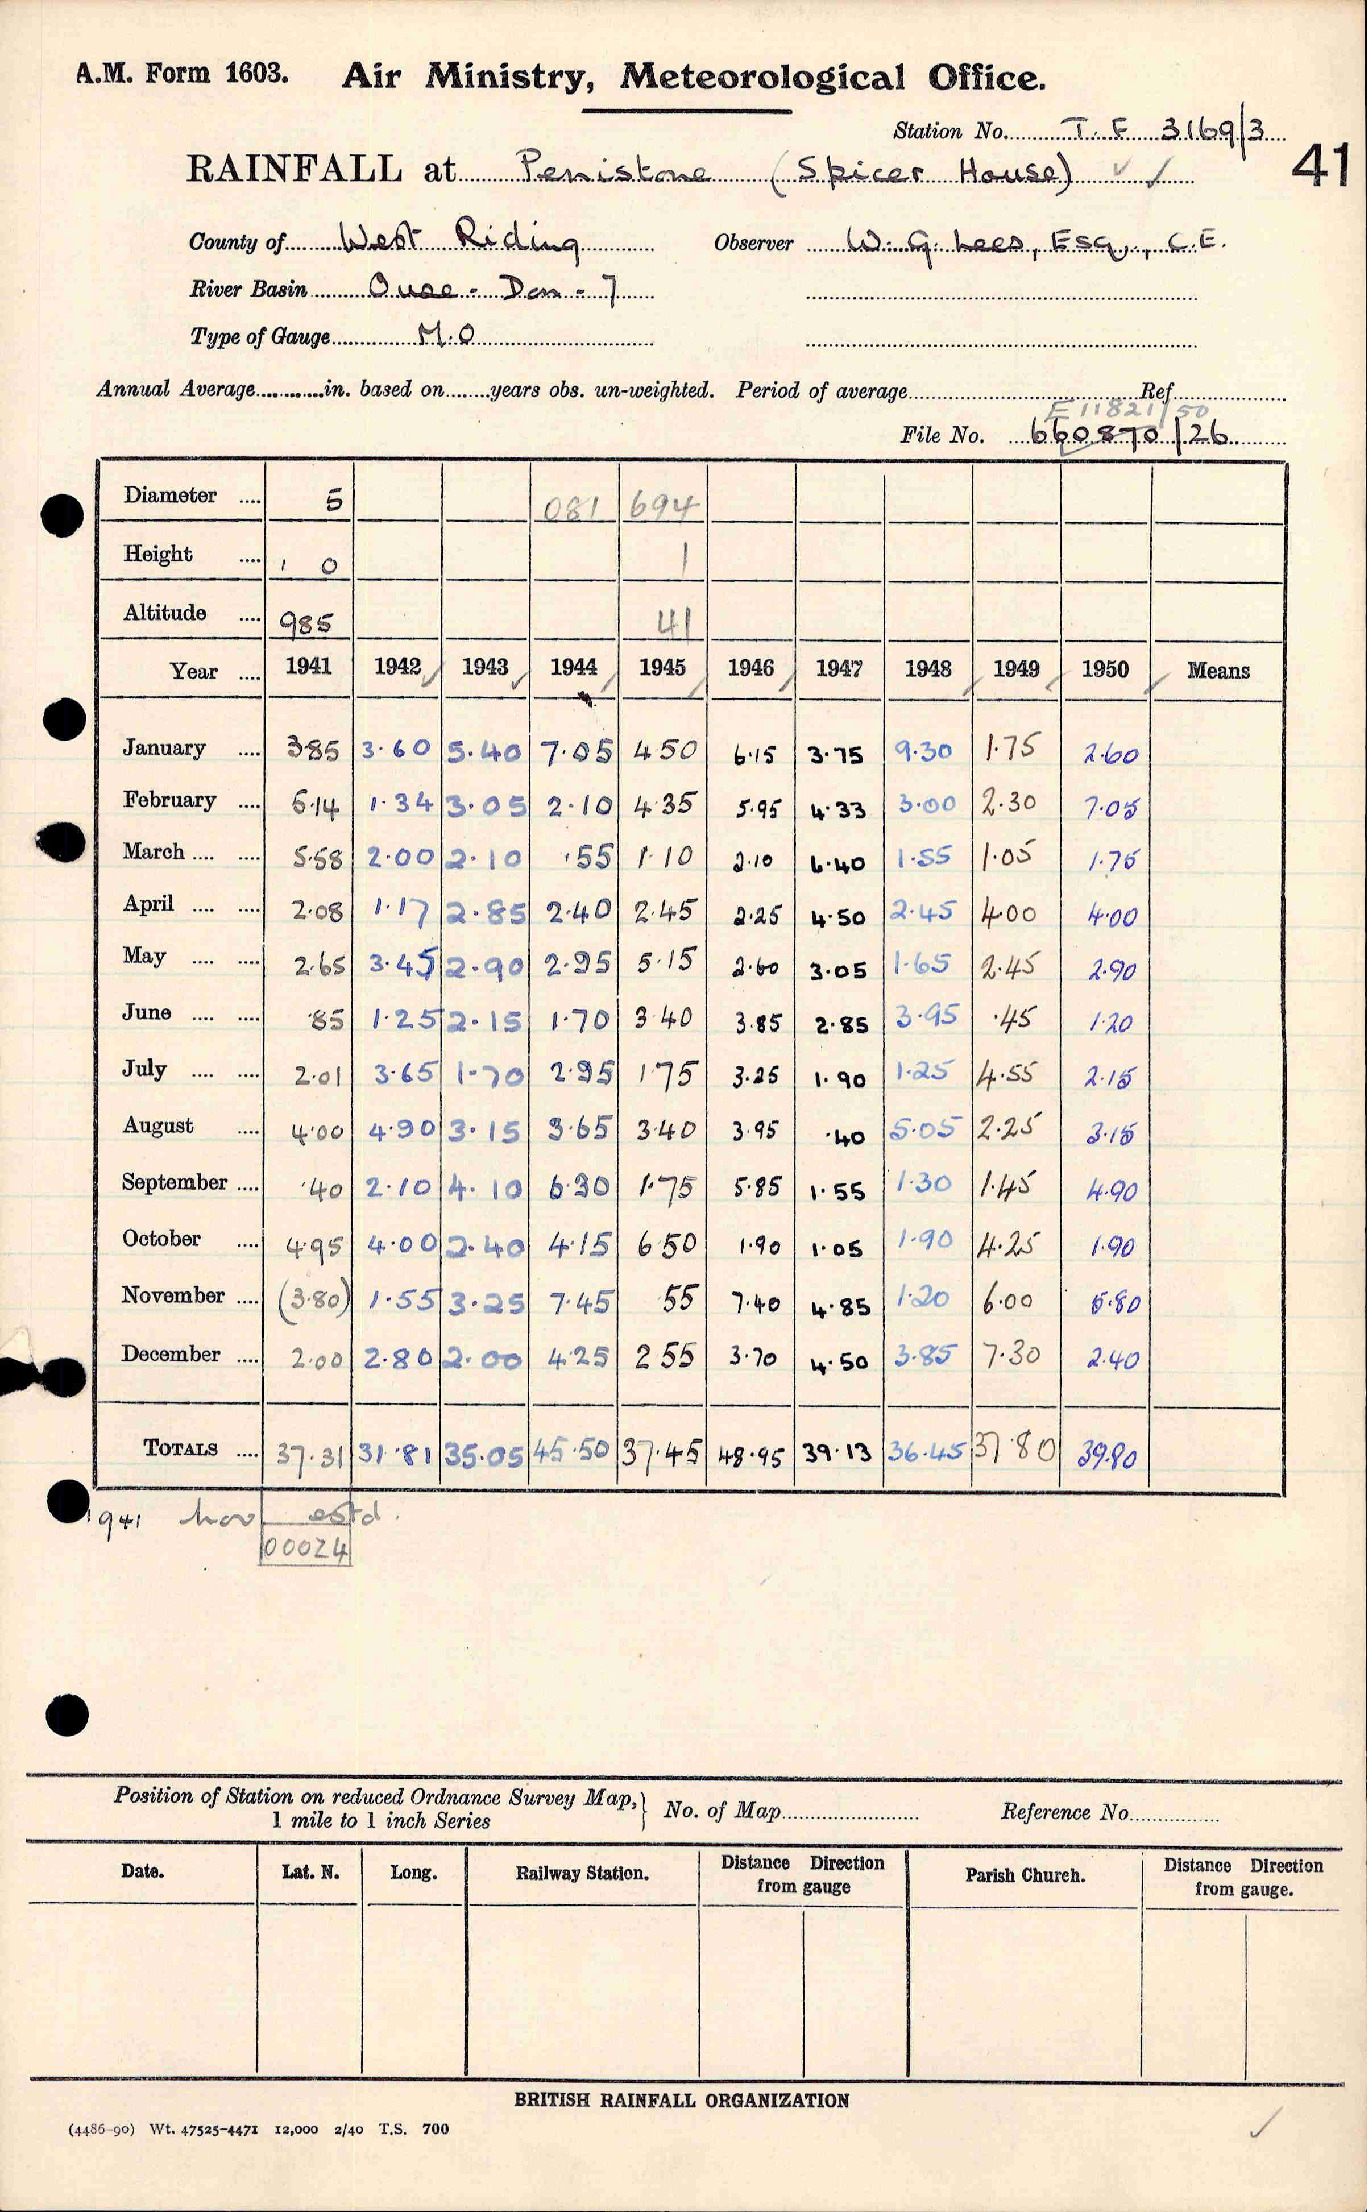 A.M. Form 1603. Air Ministry, Meteorological Office.
Station No. T.F 3169/3
41
RAINFALL at Penistone (Spicer House) ✓ ✓
County of West Riding Observer W. G. Lees, Esq., C.E.
River Basin Ouse - Don - 7
Type of Gauge M.O
Annual Average............in. based on........years obs. un-weighted. Period of average Ref
E 11821/50
File No. 660870/26
Diameter .... 5 081 694
Height .... 1 0 1
Altitude .... 985 41
Year .... 1941 1942 ✓ 1943 ✓ 1944 1945 1946 1947 1948 1949 1950 ✓ Means
January .... 3.85 3.60 5.40 7.05 4 50 6.15 3.75 9.30 1.75 2.60
February .... 5.14 1.34 3.05 2.10 4.35 5.95 4.33 3.00 2.30 7.05
March .... .... 5.58 2.00 2.10 .55 1.10 2.10 6.40 1.55 1.05 1.75
April .... .... 2.08 1.17 2.85 2.40 2.45 2.25 4.50 2.45 4.00 4.00
May .... .... 2.65 3.45 2.90 2.95 5.15 2.60 3.05 1.65 2.45 2.90
June .... .... .85 1.25 2.15 1.70 3 40 3.85 2.85 3.95 .45 1.20
July .... .... 2.01 3.65 1.70 2.95 1.75 3.25 1.90 1.25 4.55 2.15
August .... 4.00 4.90 3.15 3.65 3.40 3.95 .40 5.05 2.25 3.15
September .... .40 2.10 4.10 6.30 1.75 5.85 1.55 1.30 1.45 4.90
October .... 4.95 4.00 2.40 4.15 6 50 1.90 1.05 1.90 4.25 1.90
November .... (3.80) 1.55 3.25 7.45 55 7.40 4.85 1.20 6.00 5.80
December .... 2.00 2.80 2.00 4.25 2 55 3.70 4.50 3.85 7.30 2.40
TOTALS .... 37.31 31.81 35.05 45.50 37.45 48.95 39.13 36.45 37.80 39.80
1941 Nov estd.
00024
Position of Station on reduced Ordnance Survey Map, 1 mile to 1 inch Series } No. of Map Reference No.
Date. Lat. N. Long. Railway Station. Distance Direction from gauge Parish Church. Distance Direction from gauge.
BRITISH RAINFALL ORGANIZATION
(4486-90) Wt. 47525-4471 12,000 2/40 T.S. 700